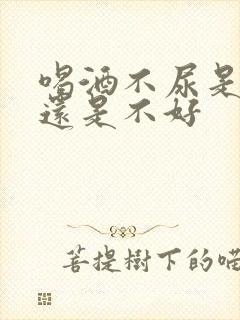 喝酒不尿是
還是不好
菩提樹下的喵